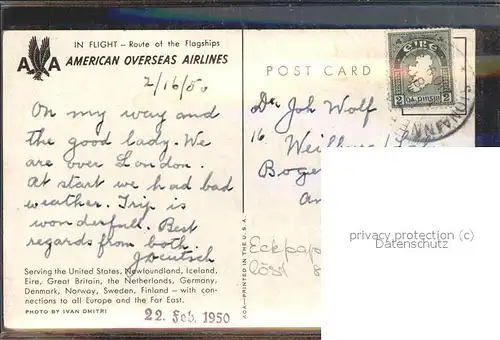 IN FLIGHT – Route of the Flagships
AA AMERICAN OVERSEAS AIRLINES
2/16/50
On my way and
the good lady. We
are over London.
At start we had bad
weather. Trip is
wonderfull. Best
regards from both.
Serving the United States, Newfoundland, Iceland,
Eire, Great Britain, the Netherlands, Germany,
Denmark, Norway, Sweden, Finland – with con-
nections to all Europe and the Far East.
PHOTO BY IVAN DMITRI
22. Feb. 1950
AOA—PRINTED IN THE U.S.A.
POST CARD
éire
2 2
Dr. Joh Wolf
16.
Eckpap
löst
privacy protection (c)
Datenschutz